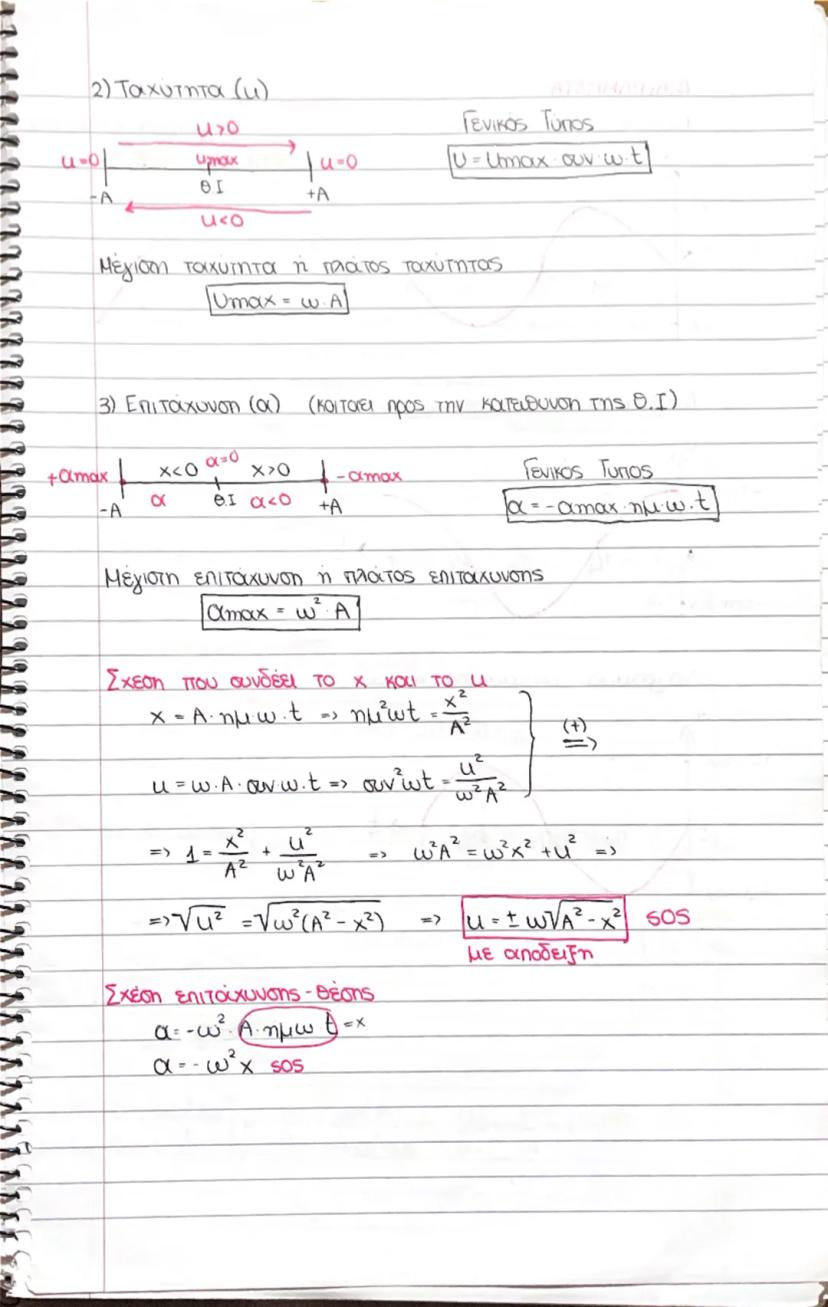 2) Ταχύτητα (u)
u>0
Γενικός Τύπος
u=0 umax u=0
U = Umax · συν · ω · t
-A Θ.Ι +A
u<0
Μέγιστη ταχύτητα ή πλάτος ταχύτητας
Umax = ω · A
3) Επιτάχυνση (α) (κοιτάει προς την κατεύθυνση της Θ.Ι)
+αmax x<0 α=0 x>0 -αmax
Γενικός Τύπος
-A α Θ.Ι α<0 +A
α = -αmax · ημ · ω · t
Μέγιστη επιτάχυνση ή πλάτος επιτάχυνσης
αmax = ω² · A
Σχέση που συνδέει το x και το u
x = A · ημ · ω · t => ημ²ωt = x²/A²
(+) =>
u = ω · A · συν · ω · t => συν²ωt = u²/ω²A²
=> 1 = x²/A² + u²/ω²A² => ω²A² = ω²x² + u² =>
=> √u² = √ω²(A² - x²) => u = ± ω√A² - x² sos
με απόδειξη
Σχέση επιτάχυνσης - θέσης
α = -ω² · A · ημω t = x
α = - ω² x sos